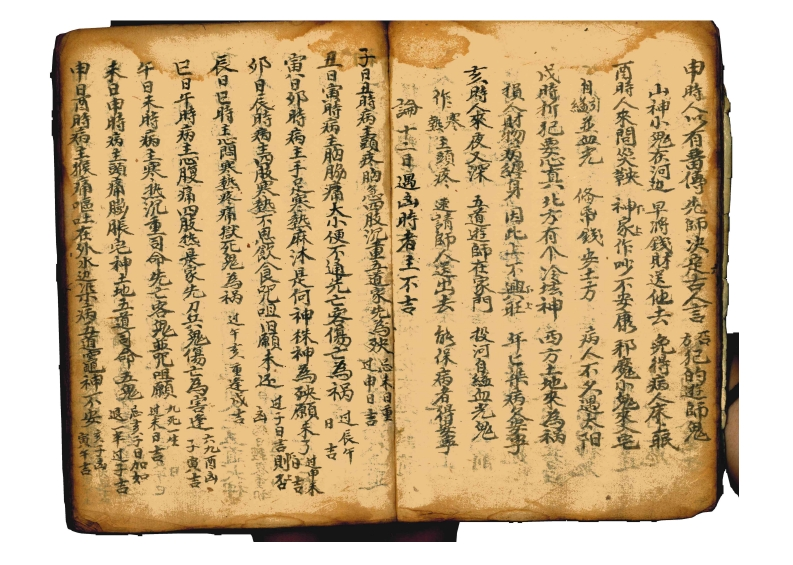 申時人以有書傳 先師決是古人言 若犯的遊師鬼
山神小鬼在河边 早將錢財送他去 免得病人床眠
酉時人來問災殃 神家作吵不安康 邪魔小鬼來宅
自縊並血光 修帛錢 安土方 病人不久遇太阳
戌時折犯要心真 北方有个冷坛神 西方土地來為禍
損人財物病纏身 因此上不興旺
亥時人來夜又深 五道遊師在家門 投河自縊血光鬼
作寒熱主頭疼 速請師人送出去 能保病者得安寧
論十二日遇凶時者主不吉
子日丑時病主頭疼胸急四股沉重五道家先為殃 忌未日重 过申日吉
丑日寅時病主胸膨痛大小便不通先亡客傷亡為禍 过辰午日吉
寅日卯時病主手足寒熱麻沐是何神株神為殃願未了 过申未日吉
卯日辰時病主四股寒熱不思飲食咒咀旧願未还 过子日吉則否 凶
辰日巳時主心悶寒熱疼痛獄死鬼為禍 过午亥重逢戌吉
巳日午時病主心腹痛四股热是家先刀兵鬼傷亡為害 逢六九酉凶 子寅吉
午日未時病主寒热沉重司命先亡客鬼並咒咀願 九死一生 过未日吉
未日申時病主頭痛膨脹宅神土地五道司命五鬼 忌亥子日加如 退一半过于吉
申日酉時病主喉痛嘔吐在外水边派小病五道竈神不安 亥子凶 寅午吉